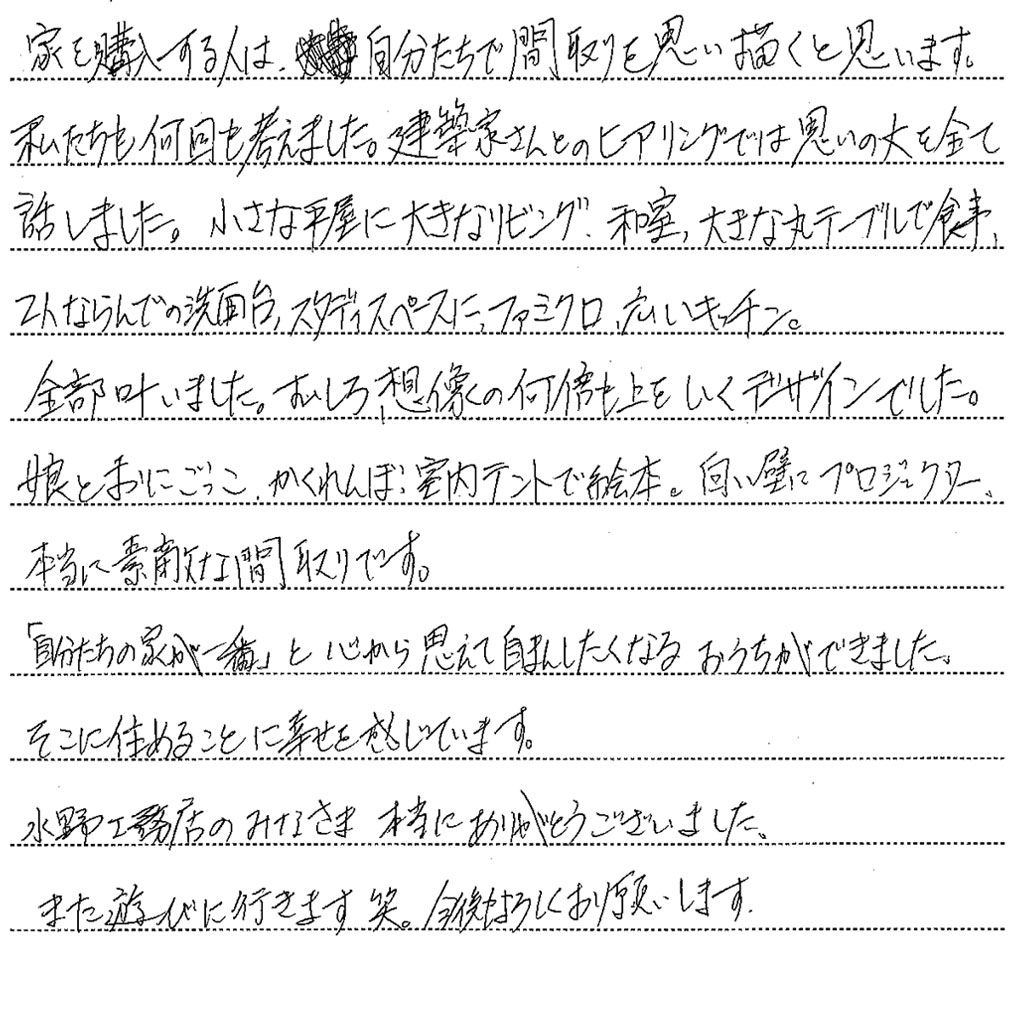 家を購入する人は、自分たちで間取りを思い描くと思います。
私たちも何回も考えました。建築家さんとのヒアリングでは思いの丈を全て
話しました。小さな平屋に大きなリビング、和室、大きな丸テーブルで食事、
2人ならんでの洗面台、スタディスペースに、ファミクロ、広いキッチン。
全部叶いました。むしろ想像の何倍も上をいくデザインでした。
娘とおにごっこ、かくれんぼ、室内テントで絵本。白い壁にプロジェクター、
本当に素敵な間取りです。
「自分たちの家が一番」と心から思えて自まんしたくなるおうちができました。
そこに住めることに幸せを感じています。
水野工務店のみなさま 本当にありがとうございました。
また遊びに行きます笑。今後もよろしくお願いします。